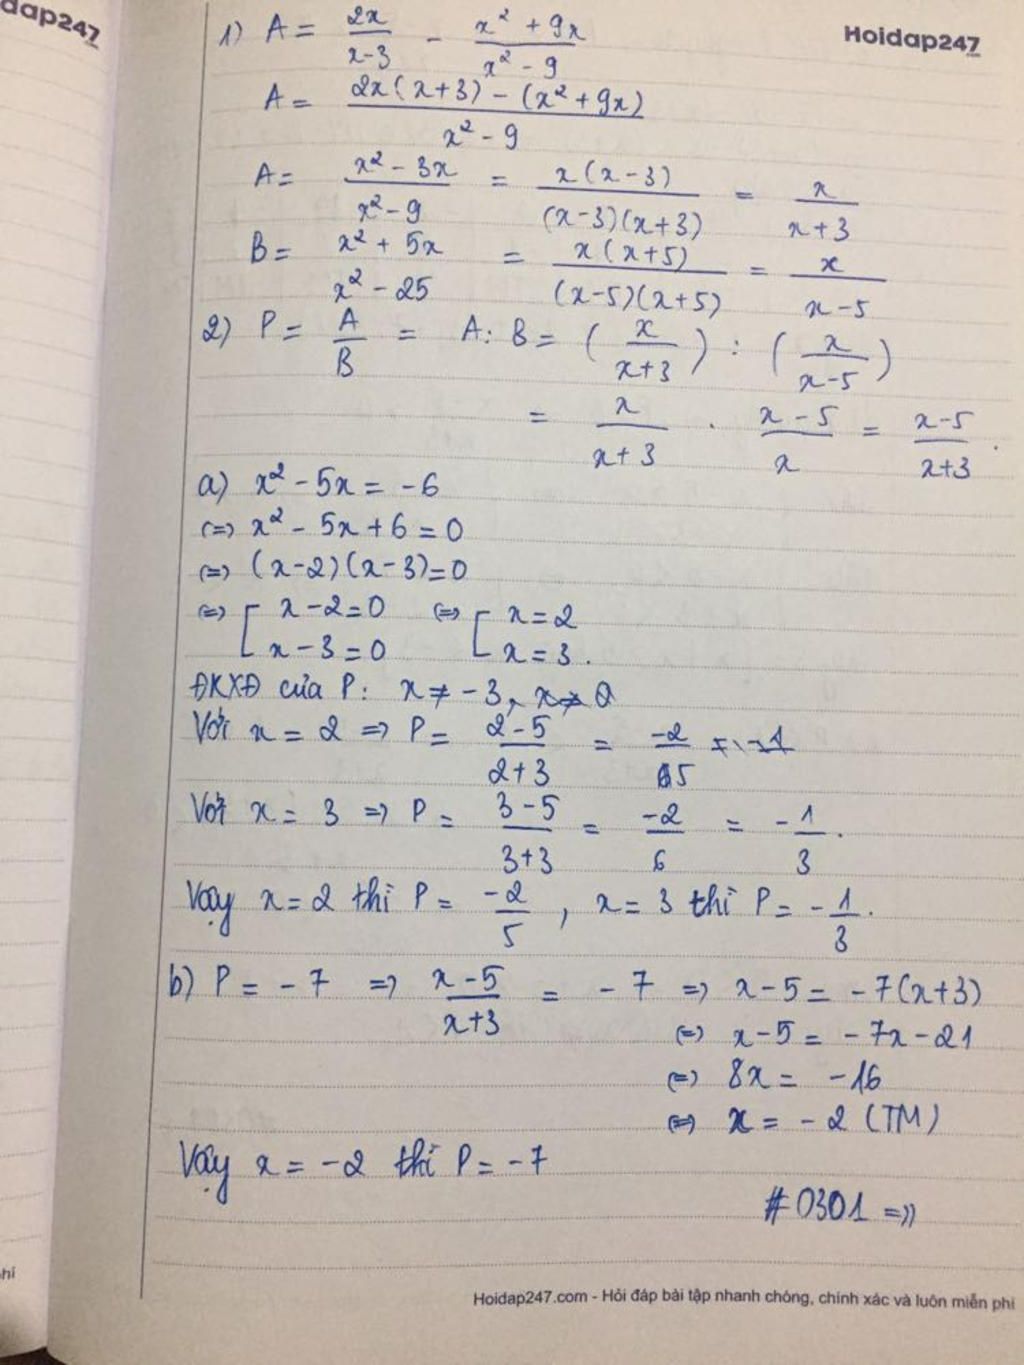 dap247
Hoidap247
1) A = 2x/(x-3) - (x² + 9x)/(x² - 9)
A = (2x(x+3) - (x² + 9x))/(x² - 9)
A = (x² - 3x)/(x² - 9) = x(x-3)/((x-3)(x+3)) = x/(x+3)
B = (x² + 5x)/(x² - 25) = x(x+5)/((x-5)(x+5)) = x/(x-5)
2) P = A/B = A : B = (x/(x+3)) : (x/(x-5))
= x/(x+3) . (x-5)/x = (x-5)/(x+3) .
a) x² - 5x = -6
(=) x² - 5x + 6 = 0
(=) (x-2)(x-3) = 0
(=) [ x-2=0 (=) [ x=2
x-3=0 x=3.
ĐKXĐ của P: x ≠ -3,
Với x = 2 => P = (2-5)/(2+3) = -2/5
Với x = 3 => P = (3-5)/(3+3) = -2/6 = -1/3 .
Vậy x=2 thì P = -2/5 , x = 3 thì P = -1/3 .
b) P = -7 => (x-5)/(x+3) = -7 => x-5 = -7(x+3)
(=) x-5 = -7x-21
(=) 8x = -16
(=) x = -2 (TM)
Vậy x = -2 thì P = -7
#0301 =))
hí
Hoidap247.com - Hỏi đáp bài tập nhanh chóng, chính xác và luôn miễn phí